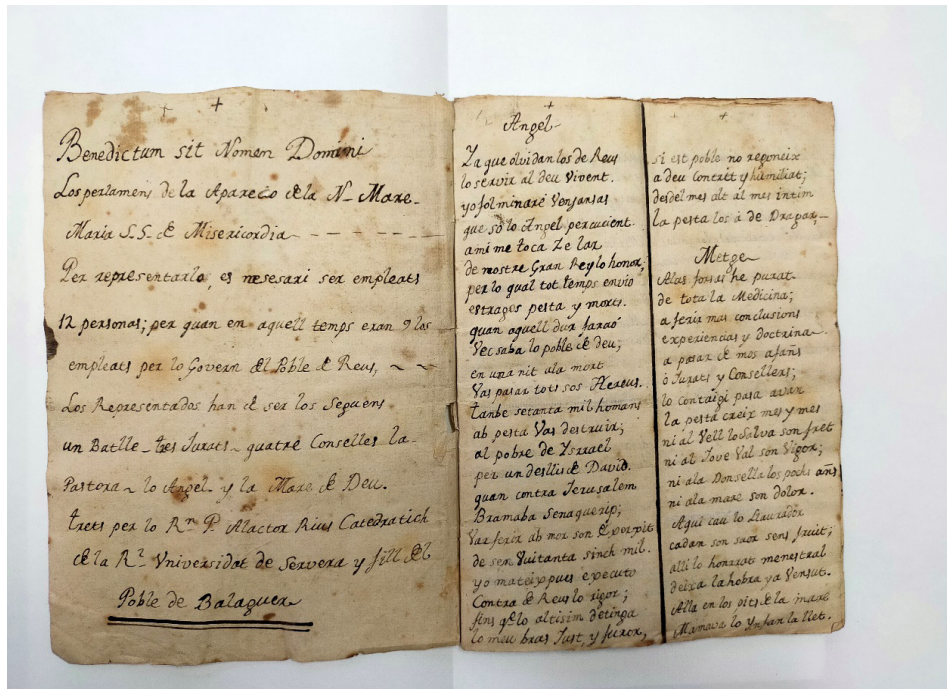 Benedictum sit Nomen Domini
Los perlamens de la Apareco de la N. Mare
Maria S.S. de Misericordia
Per representarlo, es nesesari ser empleats
12 personas; per quan en aquell temps eran 9 los
empleats per lo Govern del Poble de Reus,
Los Representados han de ser los Seguens
un Batlle - tres Jurats - quatre Conselles la
Pastora - lo Angel y la Mare de Deu.
trets per lo Rn P. Rius Catedratich
de la Rl Universidat de Servera y fill del
Poble de Balaguer
Angel
Ya que olvidan los de Reus
lo servir al deu Vivent.
yo folminaré Venjansas
que só lo Angel percucient.
a mi me toca Ze lar
de nostre Gran Rey lo honor;
per lo qual tot temps envio
estragos pesta y morts.
quan aquell dur faraó
Vecsaba lo poble de deu;
en una nit ala mort
Vas pasar tots sos Aereus.
tanbe setanta mil homans
ab pesta Vas destruir;
al pobre de Ysrrael
per un desllis de David.
quan contra Jerusalem
Bramaba Senaquerip;
Var ferir ab mor son
de sen Vuitanta sinch mil.
yo mateix pues executo
Contra de Reus lo rigor;
fins qe lo altisim detinga
lo meu bras Just, y furor,
si est poble no regoneix
a deu Contrit y humiliat;
desdel mes alt al mes intim
la pesta los à de Dragar,
Metge
Alas forsas he purat
de tota la Medicina;
a ferir mas conclusions
experiencias y doctrina
a pasar de mos afañs
ò Jurats y Consellers;
lo contaigi pasa avan
la pesta creix mes y mes
ni al Vell lo Salva son fret
ni al Jove Val son Vigor;
ni ala Donsella los pochs añs
ni ala mare son dolor.
Aqui cau lo Llaurador
cadan son suor sens fruit;
alli lo honrrat menestral
deixa la hobra ya Vensut.
Alla en los pits de la mare
Mamava lo Ynfan la llet.